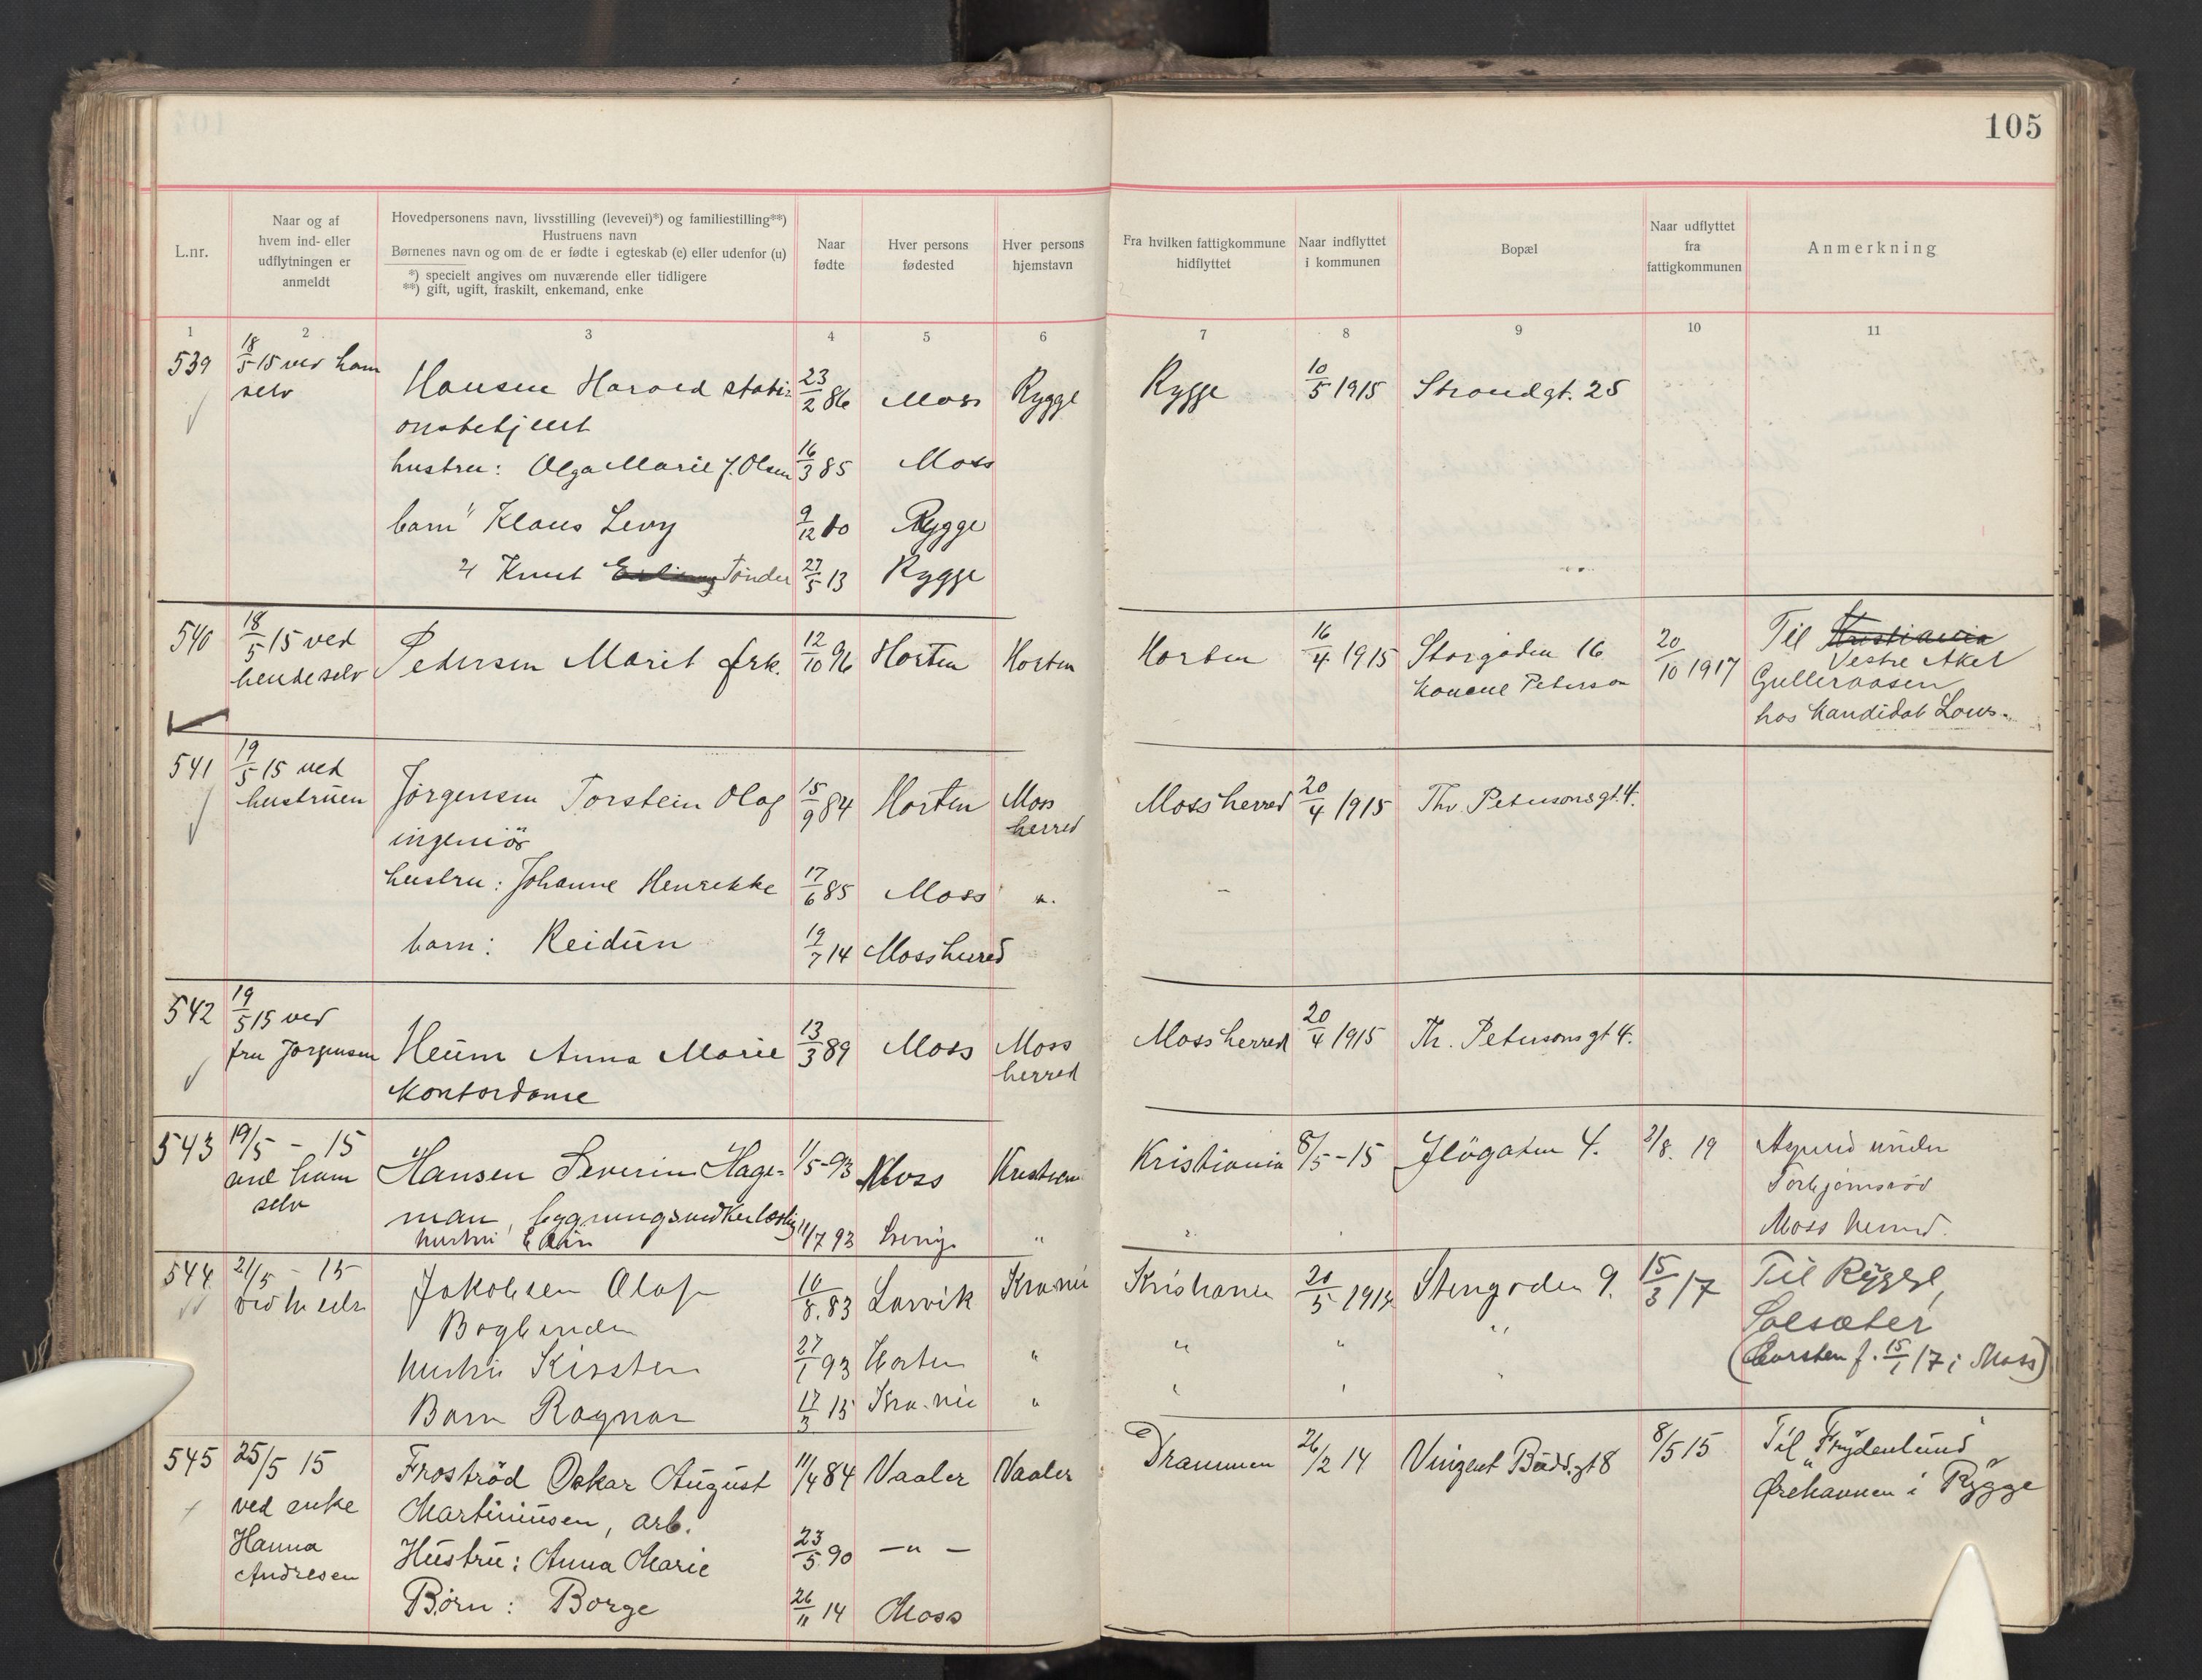 105
L.nr.
Naar og af
hvem ind- eller
udflytningen er
anmeldt
Hovedpersonens navn, livsstilling (levevei)*) og familiestilling**)
Hustruens navn
Børnenes navn og om de er fødte i egteskab (e) eller udenfor (u)
*) specielt angives om nuværende eller tidligere
**) gift, ugift, fraskilt, enkemand, enke
Naar
fødte
Hver persons
fødested
Hver persons
hjemstavn
Fra hvilken fattigkommune
hidflyttet
Naar indflyttet
i kommunen
Bopæl
Naar udflyttet
fra
fattigkommunen
Anmerkning
1 2 3 4 5 6 7 8 9 10 11
539 18/5 15 ved ham Hansen Harald stati- 23/2 86 Moss Rygge Rygge 10/5 1915 Strandgt. 25
selv onsbetjent
hustru: Olga Marie f. Olsen 16/3 85 Moss
barn Klaus Levy 9/12 10 Rygge
" Knut Tønder 27/5 13 Rygge
540 18/5 15 ved Pedersen Marit frk. 12/10 96 Horten Horten Horten 16/4 1915 Storgaden 16 20/10 1917 Til Kristiania
hende selv Peterson Vestre Aker
Gulleraasen
hos Kandidat
541 19/5 15 ved Jørgensen Torstein Olaf 15/9 84 Horten Moss Moss herred 20/4 1915 Thv. Petersonsgt. 4.
hustruen ingeniør herred
hustru: Johanne Henrikke 17/6 85 Moss "
barn: Reidun 19/7 14 Mossherred
542 19/5 15 ved Heum Anna Marie 13/3 89 Moss Moss Mossherred 20/4 1915 Th. Petersonsgt 4.
fru Jørgensen Kontordame herred
543 19/5 - 15 Hansen Severin Hage- 1/5-93 Moss Kristiania Kristiania 8/5-15 4. 3/8. 19 under
ved ham man, Torbjørnsrød
selv hustru 11/7 93 " Moss herred.
544 21/5 - 15 Jakobsen Olaf 10/8. 83 Larvik Kra.nia Kristiania 20/5 Stengaden 9. 15/3/17 Til Rygge,
Bogbinder " " " Solsæter
hustru Kirsten 27/1 93 Horten " (Carsten f. 15/1/17 i Moss)
Barn Ragnar 17/3 15 Kra.nia "
545 25/5 15 Froströd Oskar August 11/4 84 Vaaler Vaaler Drammen 26/2 14 Vinzent Budd.gt 8 8/5 15 Til "Frydenlund"
ved enke Martiniusen, arb. Ørehavnen i Rygge
Hanna Hustru: Anna Marie 23/5. 90 —"—
Andresen Børn: Borge 26/11 14 Moss